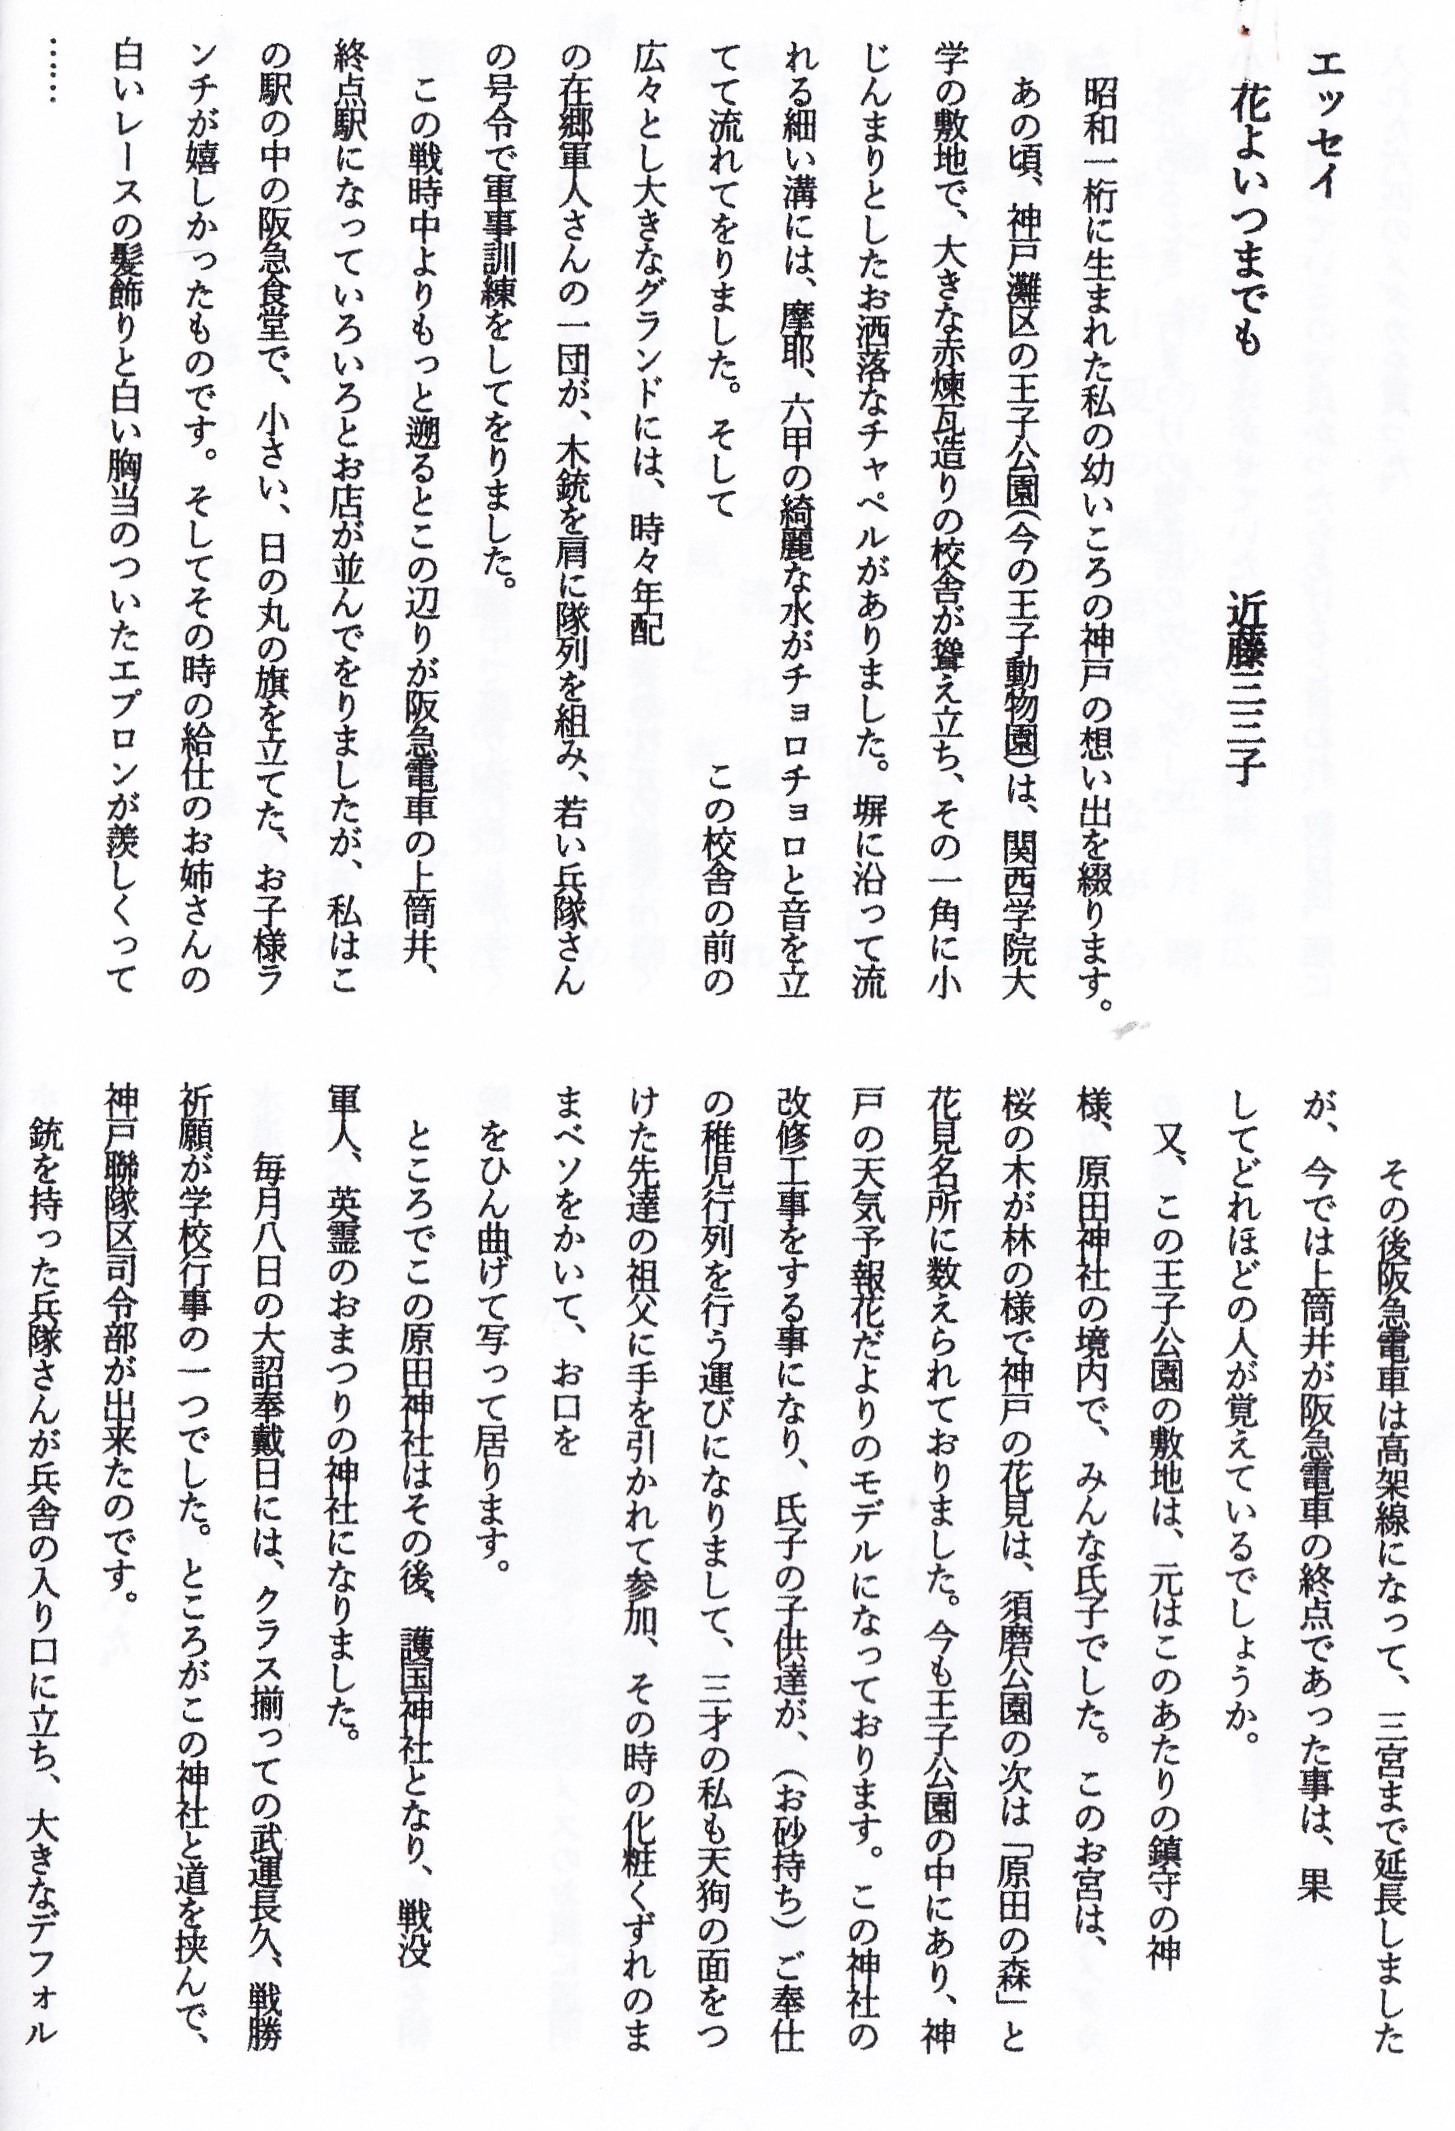 エッセイ
花よいつまでも　　　　　近藤三三子
昭和一桁に生まれた私の幼いころの神戸の想い出を綴ります。
あの頃、神戸灘区の王子公園(今の王子動物園)は、関西学院大
学の敷地で、大きな赤煉瓦造りの校舎が聳え立ち、その一角に小
じんまりとしたお洒落なチャペルがありました。塀に沿って流
れる細い溝には、摩耶、六甲の綺麗な水がチョロチョロと音を立
てて流れてをりました。そして　　　　　　　この校舎の前の
広々とし大きなグランドには、時々年配
の在郷軍人さんの一団が、木銃を肩に隊列を組み、若い兵隊さん
の号令で軍事訓練をしてをりました。
この戦時中よりもっと遡るとこの辺りが阪急電車の上筒井、
終点駅になっていろいろとお店が並んでをりましたが、私はこ
の駅の中の阪急食堂で、小さい、日の丸の旗を立てた、お子様ラ
ンチが嬉しかったものです。そしてその時の給仕のお姉さんの
白いレースの髪飾りと白い胸当のついたエプロンが羨しくって
……
その後阪急電車は高架線になって、三宮まで延長しました
が、今では上筒井が阪急電車の終点であった事は、果
してどれほどの人が覚えているでしょうか。
又、この王子公園の敷地は、元はこのあたりの鎮守の神
様、原田神社の境内で、みんな氏子でした。このお宮は、
桜の木が林の様で神戸の花見は、須磨公園の次は「原田の森」と
花見名所に数えられておりました。今も王子公園の中にあり、神
戸の天気予報花だよりのモデルになっております。この神社の
改修工事をする事になり、氏子の子供達が、(お砂持ち)ご奉仕
の稚児行列を行う運びになりまして、三才の私も天狗の面をつ
けた先達の祖父に手を引かれて参加、その時の化粧くずれのま
まベソをかいて、お口を
をひん曲げて写って居ります。
ところでこの原田神社はその後、護国神社となり、戦没
軍人、英霊のおまつりの神社になりました。
毎月八日の大詔奉戴日には、クラス揃っての武運長久、戦勝
祈願が学校行事の一つでした。ところがこの神社と道を挟んで、
神戸聯隊区司令部が出来たのです。
銃を持った兵隊さんが兵舎の入り口に立ち、大きなデフォル